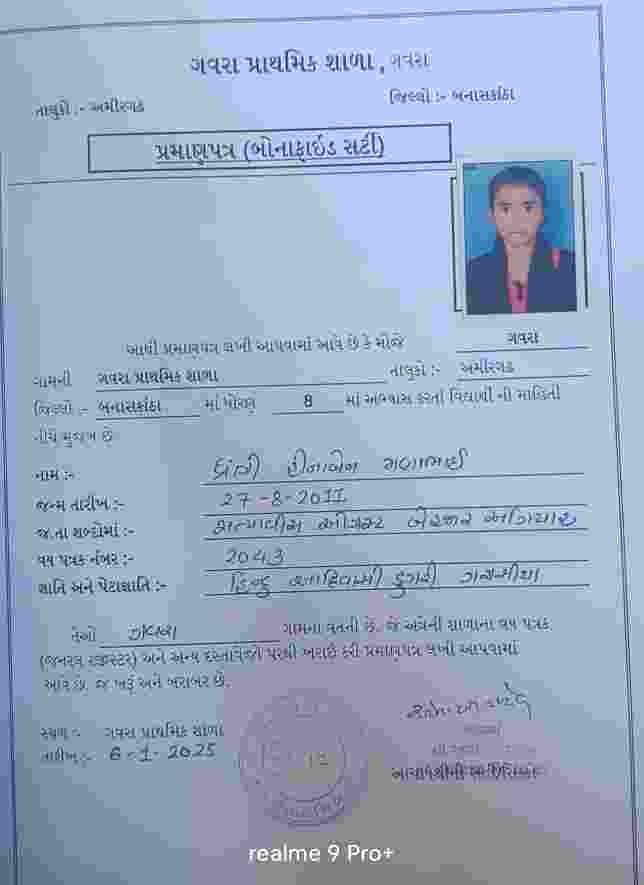 ગવરા પ્રાથમિક શાળા, ગવરા
તાલુકો :- અમીરગઢ
જિલ્લો :- બનાસકાંઠા
પ્રમાણપત્ર (બોનાફાઈડ સર્ટી)
આથી પ્રમાણપત્ર લખી આપવામાં આવે છે કે મોજે ગવરા
ગામની ગવરા પ્રાથમિક શાળા તાલુકો :- અમીરગઢ
જિલ્લો :- બનાસકાંઠા માં ધોરણ 8 માં અભ્યાસ કરતાં વિદ્યાર્થી ની માહિતી
નીચે મુજબ છે
નામ :- હીનાબેન
જન્મ તારીખ :- 27-8-2011
જ.તા શબ્દોમાં :- સત્યાવીસ ઓગસ્ટ બેહજાર અગિયાર
વય પત્રક નંબર :- 2043
જ્ઞાતિ અને પેટાજ્ઞાતિ :- હિન્દુ આદિવાસી ડુંગરી ગરાસીયા
તેઓ ગવરા ગામના વતની છે. જે અત્રેની શાળાના વય પત્રક
(જનરલ રજીસ્ટર) અને અન્ય દસ્તાવેજો પરથી ખરાઈ કરી પ્રમાણપત્ર લખી આપવામાં
આવે છે. જે ખરૂં અને બરાબર છે.
સ્થળ :- ગવરા પ્રાથમિક શાળા
તારીખ :- 6-1-2025
realme 9 Pro+